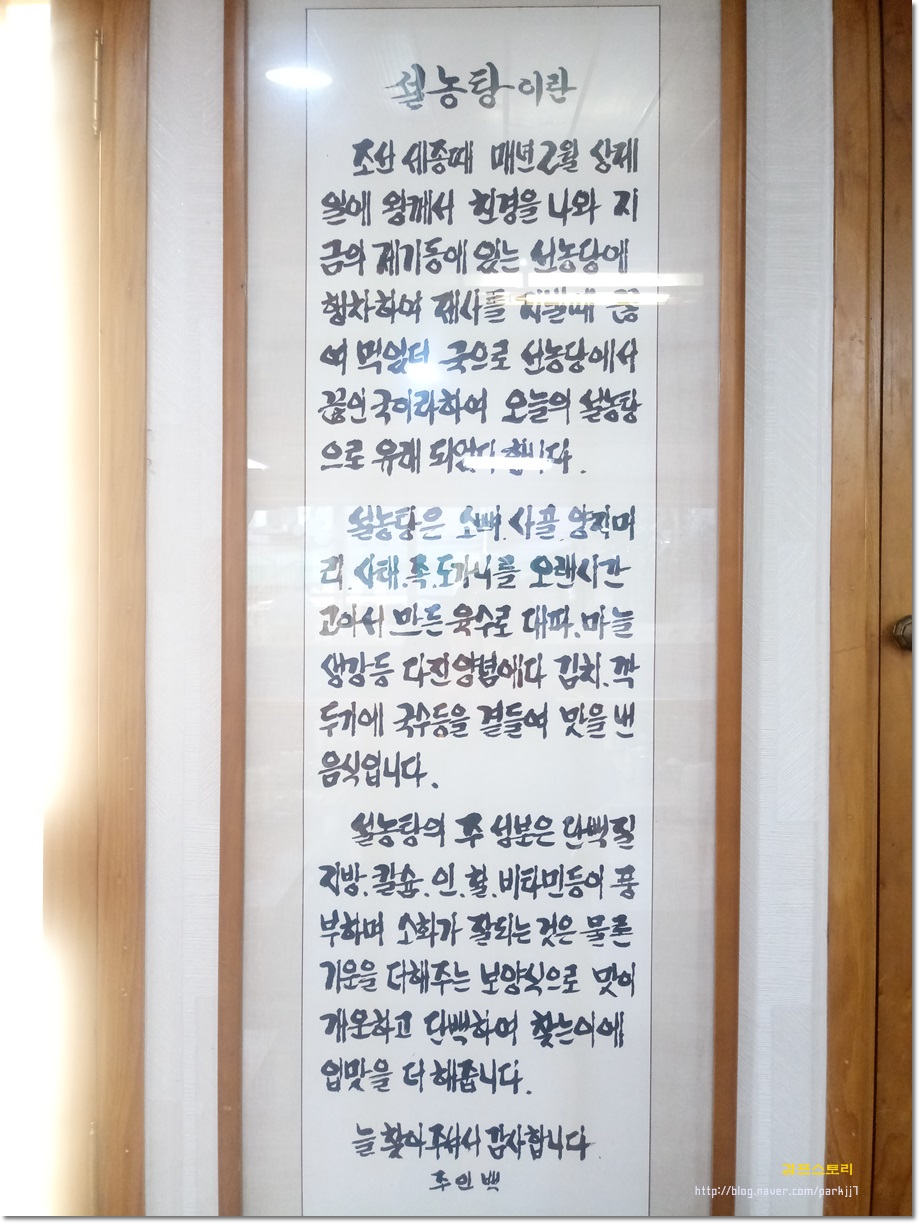 설농탕이란
조선 세종때 매년 2월 상제
일에 왕께서 친경을 나와 지
금의 제기동에 있는 선농당에
행차하여 제사를 지낼때 끓
여 먹었던 국으로 선농당에서
끓인국이라하여 오늘의 설농탕
으로 유래 되었다 합니다.
설농탕은 소뼈.사골.양직머
리.사태.족.도가니를 오랜시간
고아서 만든 육수로 대파.마늘
생강등 다진양념에다 김치.깍
두기에 국수등을 곁들여 맛을 낸
음식입니다.
설농탕의 주 성분은 단백질
지방.칼슘.인.철.비타민등이 풍
부하며 소화가 잘되는것은 물론
기운을 더해주는 보양식으로 맛이
개운하고 담백하여 찾는이에
입맛을 더 해줍니다.
늘 찾아주셔서 감사합니다
주인 백
http://blog.naver.com/parkjj7